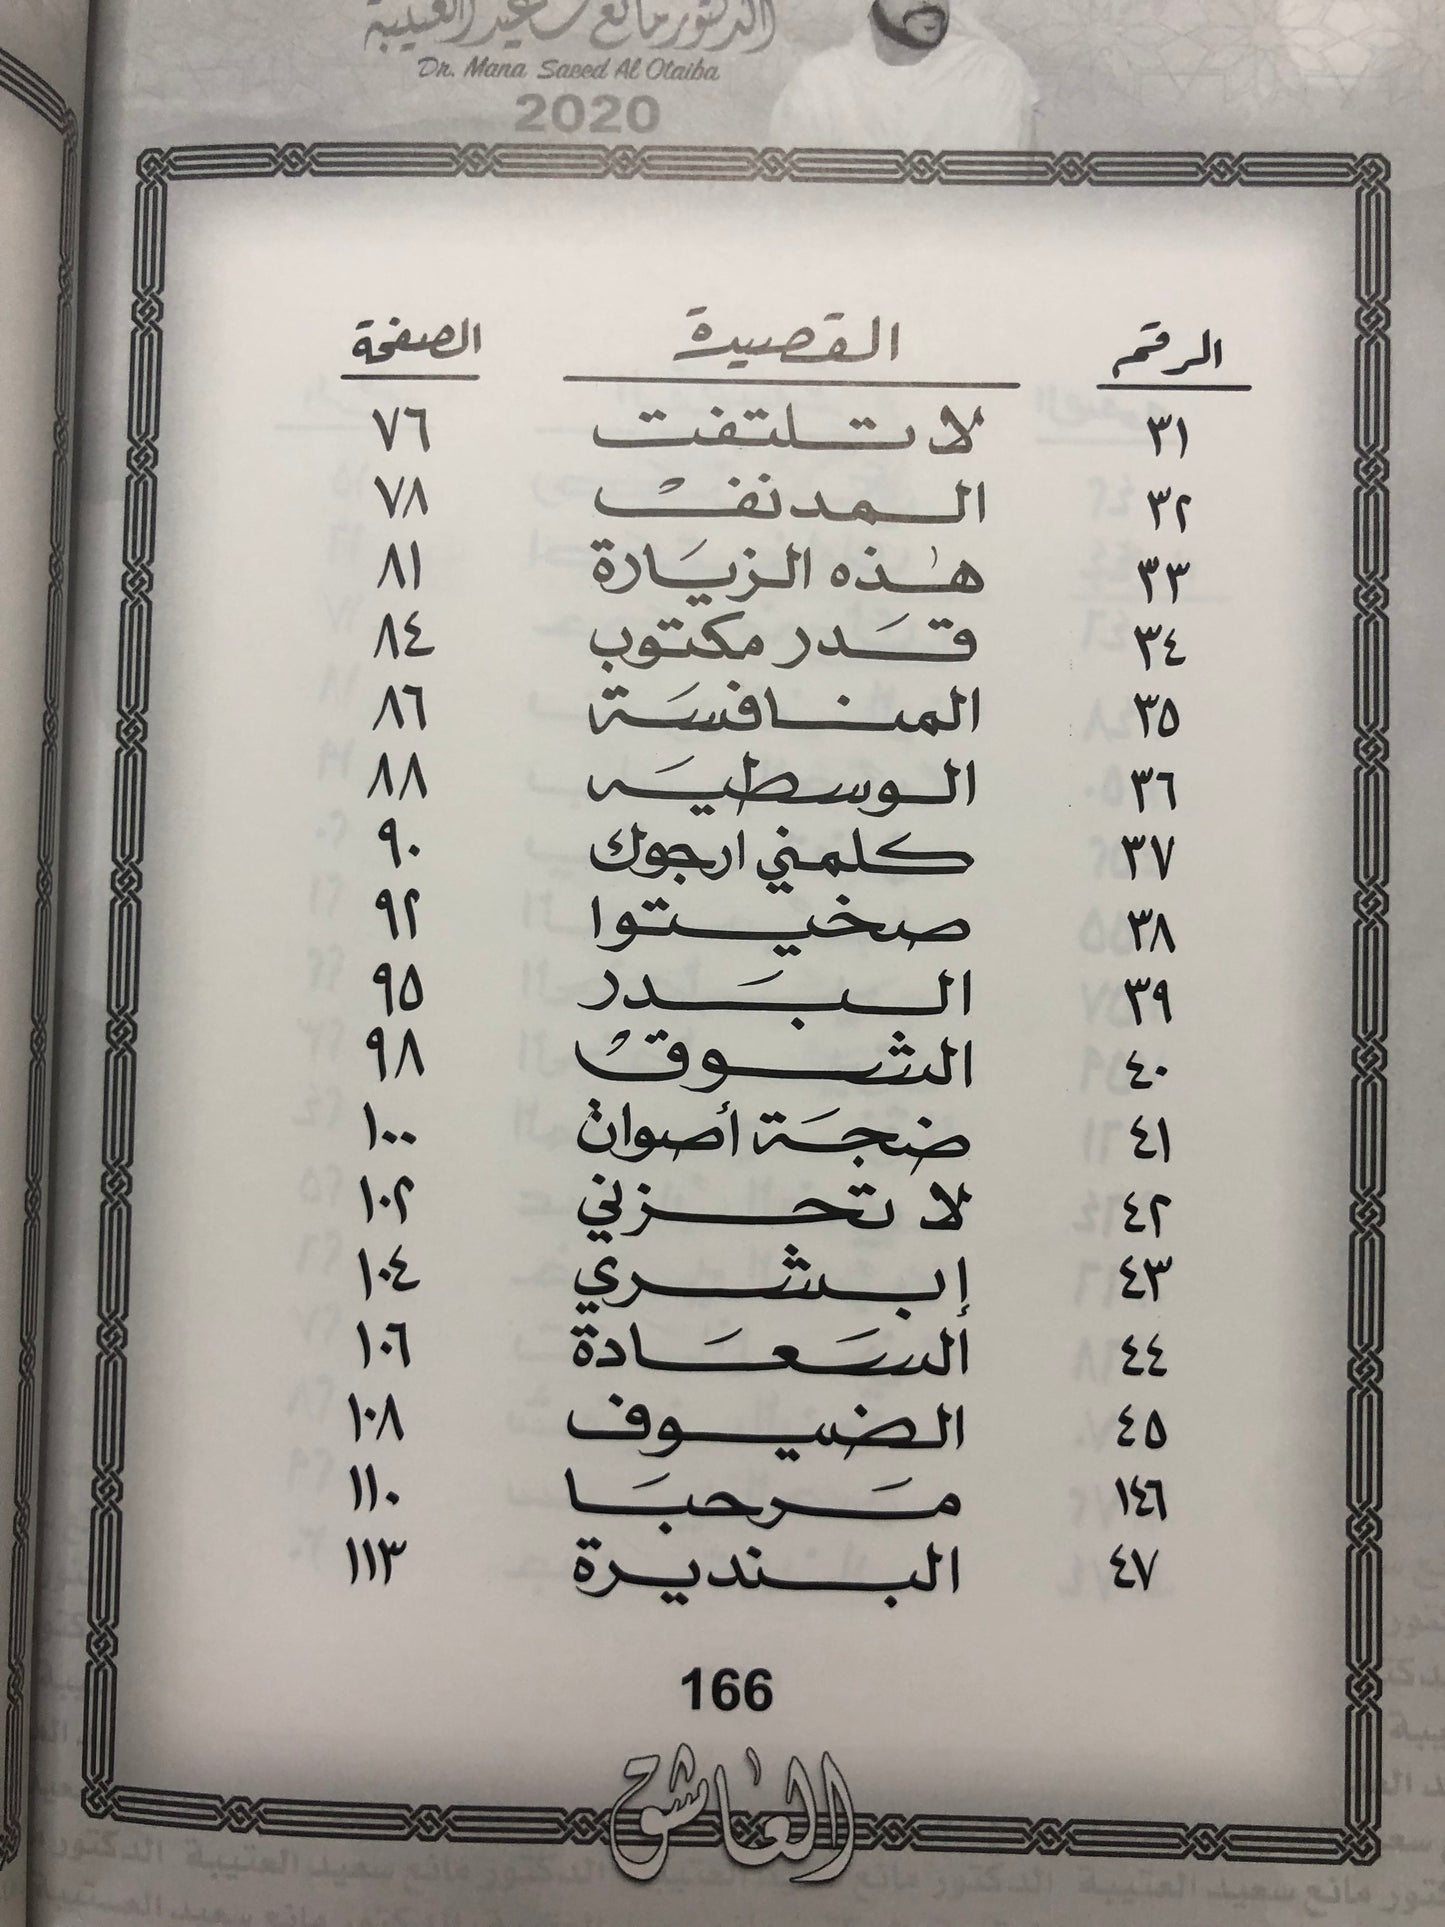 الدكتور مانع سعيد العتيبة
Dr. Mana Saeed Al Otaiba
2020
الرقم القصيدة الصفحة
٣١ لا تلتفت ٧٦
٣٢ المدنف ٧٨
٣٣ هٰذه الزيَارة ٨١
٣٤ قَدر مكتوب ٨٤
٣٥ المنافسَة ٨٦
٣٦ الوسطيَه ٨٨
٣٧ كلمني ارجوك ٩٠
٣٨ صخيتوا ٩٢
٣٩ البَدر ٩٥
٤٠ الشوق ٩٨
٤١ ضجَة أصوات ١٠٠
٤٢ لا تحزني ١٠٢
٤٣ إبشري ١٠٤
٤٤ السَعَادة ١٠٦
٤٥ الضيوف ١٠٨
١٤٦ مَرحبَا ١١٠
٤٧ البنديرة ١١٣
166
العاشق
الدكتور مانع سعيد العتيبة الدكتور مانع سعيد العتيبة الدكتور